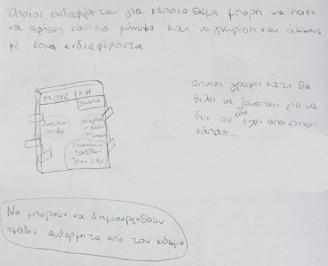 Όποιος ενδιαφέρεται για κάποιο θέμα μπορεί να πάει
να αφήσει κάποιο μήνυμα και να γνωρίσει και άλλους
με κοινα ενδιαφέροντα
ΜΟΥΣΙΚΗ
όποιος γραψει κάτι θα
θέλει να ξαναπάει για να
δει αν του έχει απαντησει
κάποιος...
Να μπορούν να δημιουργηθούν
ομάδες αυθόρμητα από τον κόσμο